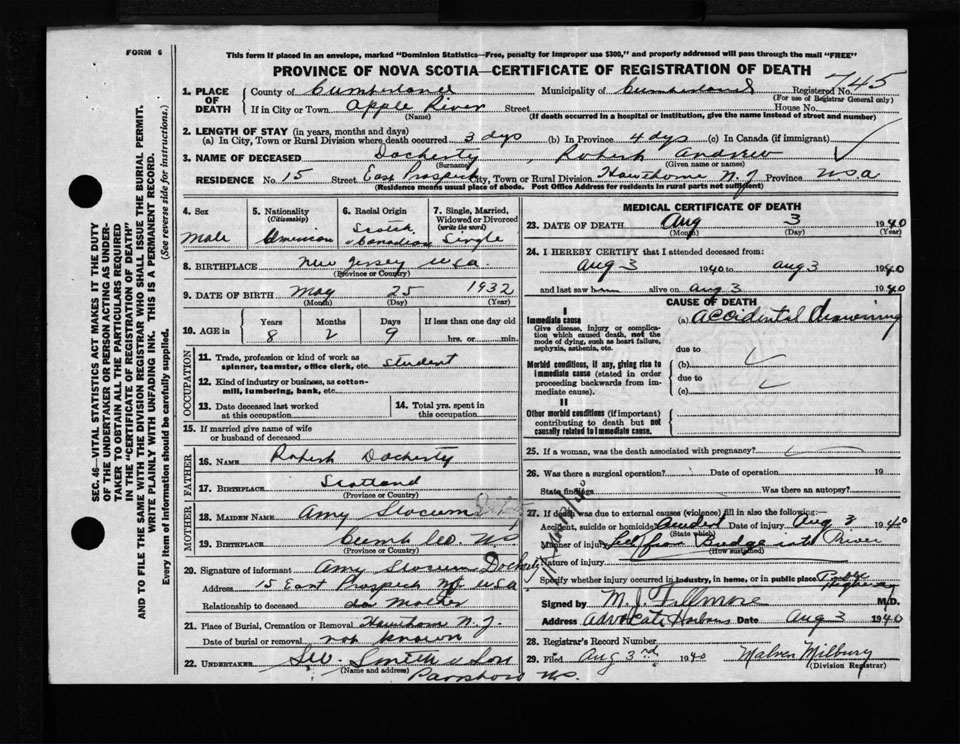 FORM 6
This form if placed in an envelope, marked "Dominion Statistics—Free, penalty for improper use $300," and properly addressed will pass through the mail "FREE"
PROVINCE OF NOVA SCOTIA—CERTIFICATE OF REGISTRATION OF DEATH
745
1. PLACE OF DEATH
County of Cumberland Municipality of Cumberland Registered No.
(For use of Registrar General only)
If in City or Town Apple River Street House No.
(Name) (If death occurred in a hospital or institution, give the name instead of street and number)
2. LENGTH OF STAY (in years, months and days)
(a) In City, Town or Rural Division where death occurred 3 dys (b) In Province 4 dys (c) In Canada (if immigrant)
3. NAME OF DECEASED Docherty, Robert Andrew
(Surname) (Given name or names)
RESIDENCE No. 15 Street East Prospect City, Town or Rural Division Hawthorne N.J Province U.S.A
(Residence means usual place of abode. Post Office Address for residents in rural parts not sufficient)
4. Sex
Male
5. Nationality
(Citizenship)
American
6. Racial Origin
Scotch
Canadian
7. Single, Married, Widowed or Divorced
(write the word)
Single
8. BIRTHPLACE New Jersey U.S.A.
(Province or Country)
9. DATE OF BIRTH May 25 1932
(Month) (Day) (Year)
10. AGE in Years Months Days If less than one day old
8 2 9 hrs. or min.
OCCUPATION
11. Trade, profession or kind of work as
spinner, teamster, office clerk, etc. Student
12. Kind of industry or business, as cotton-
mill, lumbering, bank, etc.
13. Date deceased last worked
at this occupation
14. Total yrs. spent in
this occupation
15. If married give name of wife
or husband of deceased
FATHER
16. NAME Robert Docherty
17. BIRTHPLACE Scotland
(Province or Country)
MOTHER
18. MAIDEN NAME Amy Slocum
19. BIRTHPLACE Cumb Co. N.S
(Province or Country)
20. Signature of informant Amy Slocum Docherty
Address 15 East Prospect NJ USA
Relationship to deceased Mother
21. Place of Burial, Cremation or Removal Hawthorn N.J.
Date of burial or removal not known
22. UNDERTAKER Smith & Son
(Name and address)
Parrsboro N.S.
MEDICAL CERTIFICATE OF DEATH
23. DATE OF DEATH Aug 3 1940
(Month) (Day) (Year)
24. I HEREBY CERTIFY that I attended deceased from:
Aug 3 1940 to Aug 3 1940
and last saw him alive on Aug 3 1940
CAUSE OF DEATH
I
Immediate cause (a) Accidental drowning
Give disease, injury or complica-
tion which caused death, not the
mode of dying, such as heart failure,
asphyxia, asthenia, etc.
due to
Morbid conditions, if any, giving rise to (b)
immediate cause (stated in order
proceeding backwards from im-
mediate cause).
due to
(c)
II
Other morbid conditions (if important)
contributing to death but not
causally related to immediate cause.
25. If a woman, was the death associated with pregnancy?
26. Was there a surgical operation? Date of operation 19
State findings Was there an autopsy?
27. If death was due to external causes (violence) fill in also the following:—
Accident, suicide or homicide Accident Date of injury Aug 3 1940
(State which)
Manner of injury Fell from Bridge into River
(How sustained)
Nature of injury
Specify whether injury occurred in industry, in home, or in public place Public Highway
Signed by M.J. Fillmore M.D.
Address Advocate Harbour Date Aug 3 1940
28. Registrar's Record Number
29. Filed Aug 3rd 1940 Milbury
(Division Registrar)
SEC. 46—VITAL STATISTICS ACT MAKES IT THE DUTY
OF THE UNDERTAKER OR PERSON ACTING AS UNDER-
TAKER TO OBTAIN ALL THE PARTICULARS REQUIRED
IN THE "CERTIFICATE OF REGISTRATION OF DEATH"
AND TO FILE THE SAME WITH THE DIVISION REGISTRAR WHO SHALL ISSUE THE BURIAL PERMIT.
WRITE PLAINLY WITH UNFADING INK. THIS IS A PERMANENT RECORD.
Every item of information should be carefully supplied. (See reverse side for instructions.)